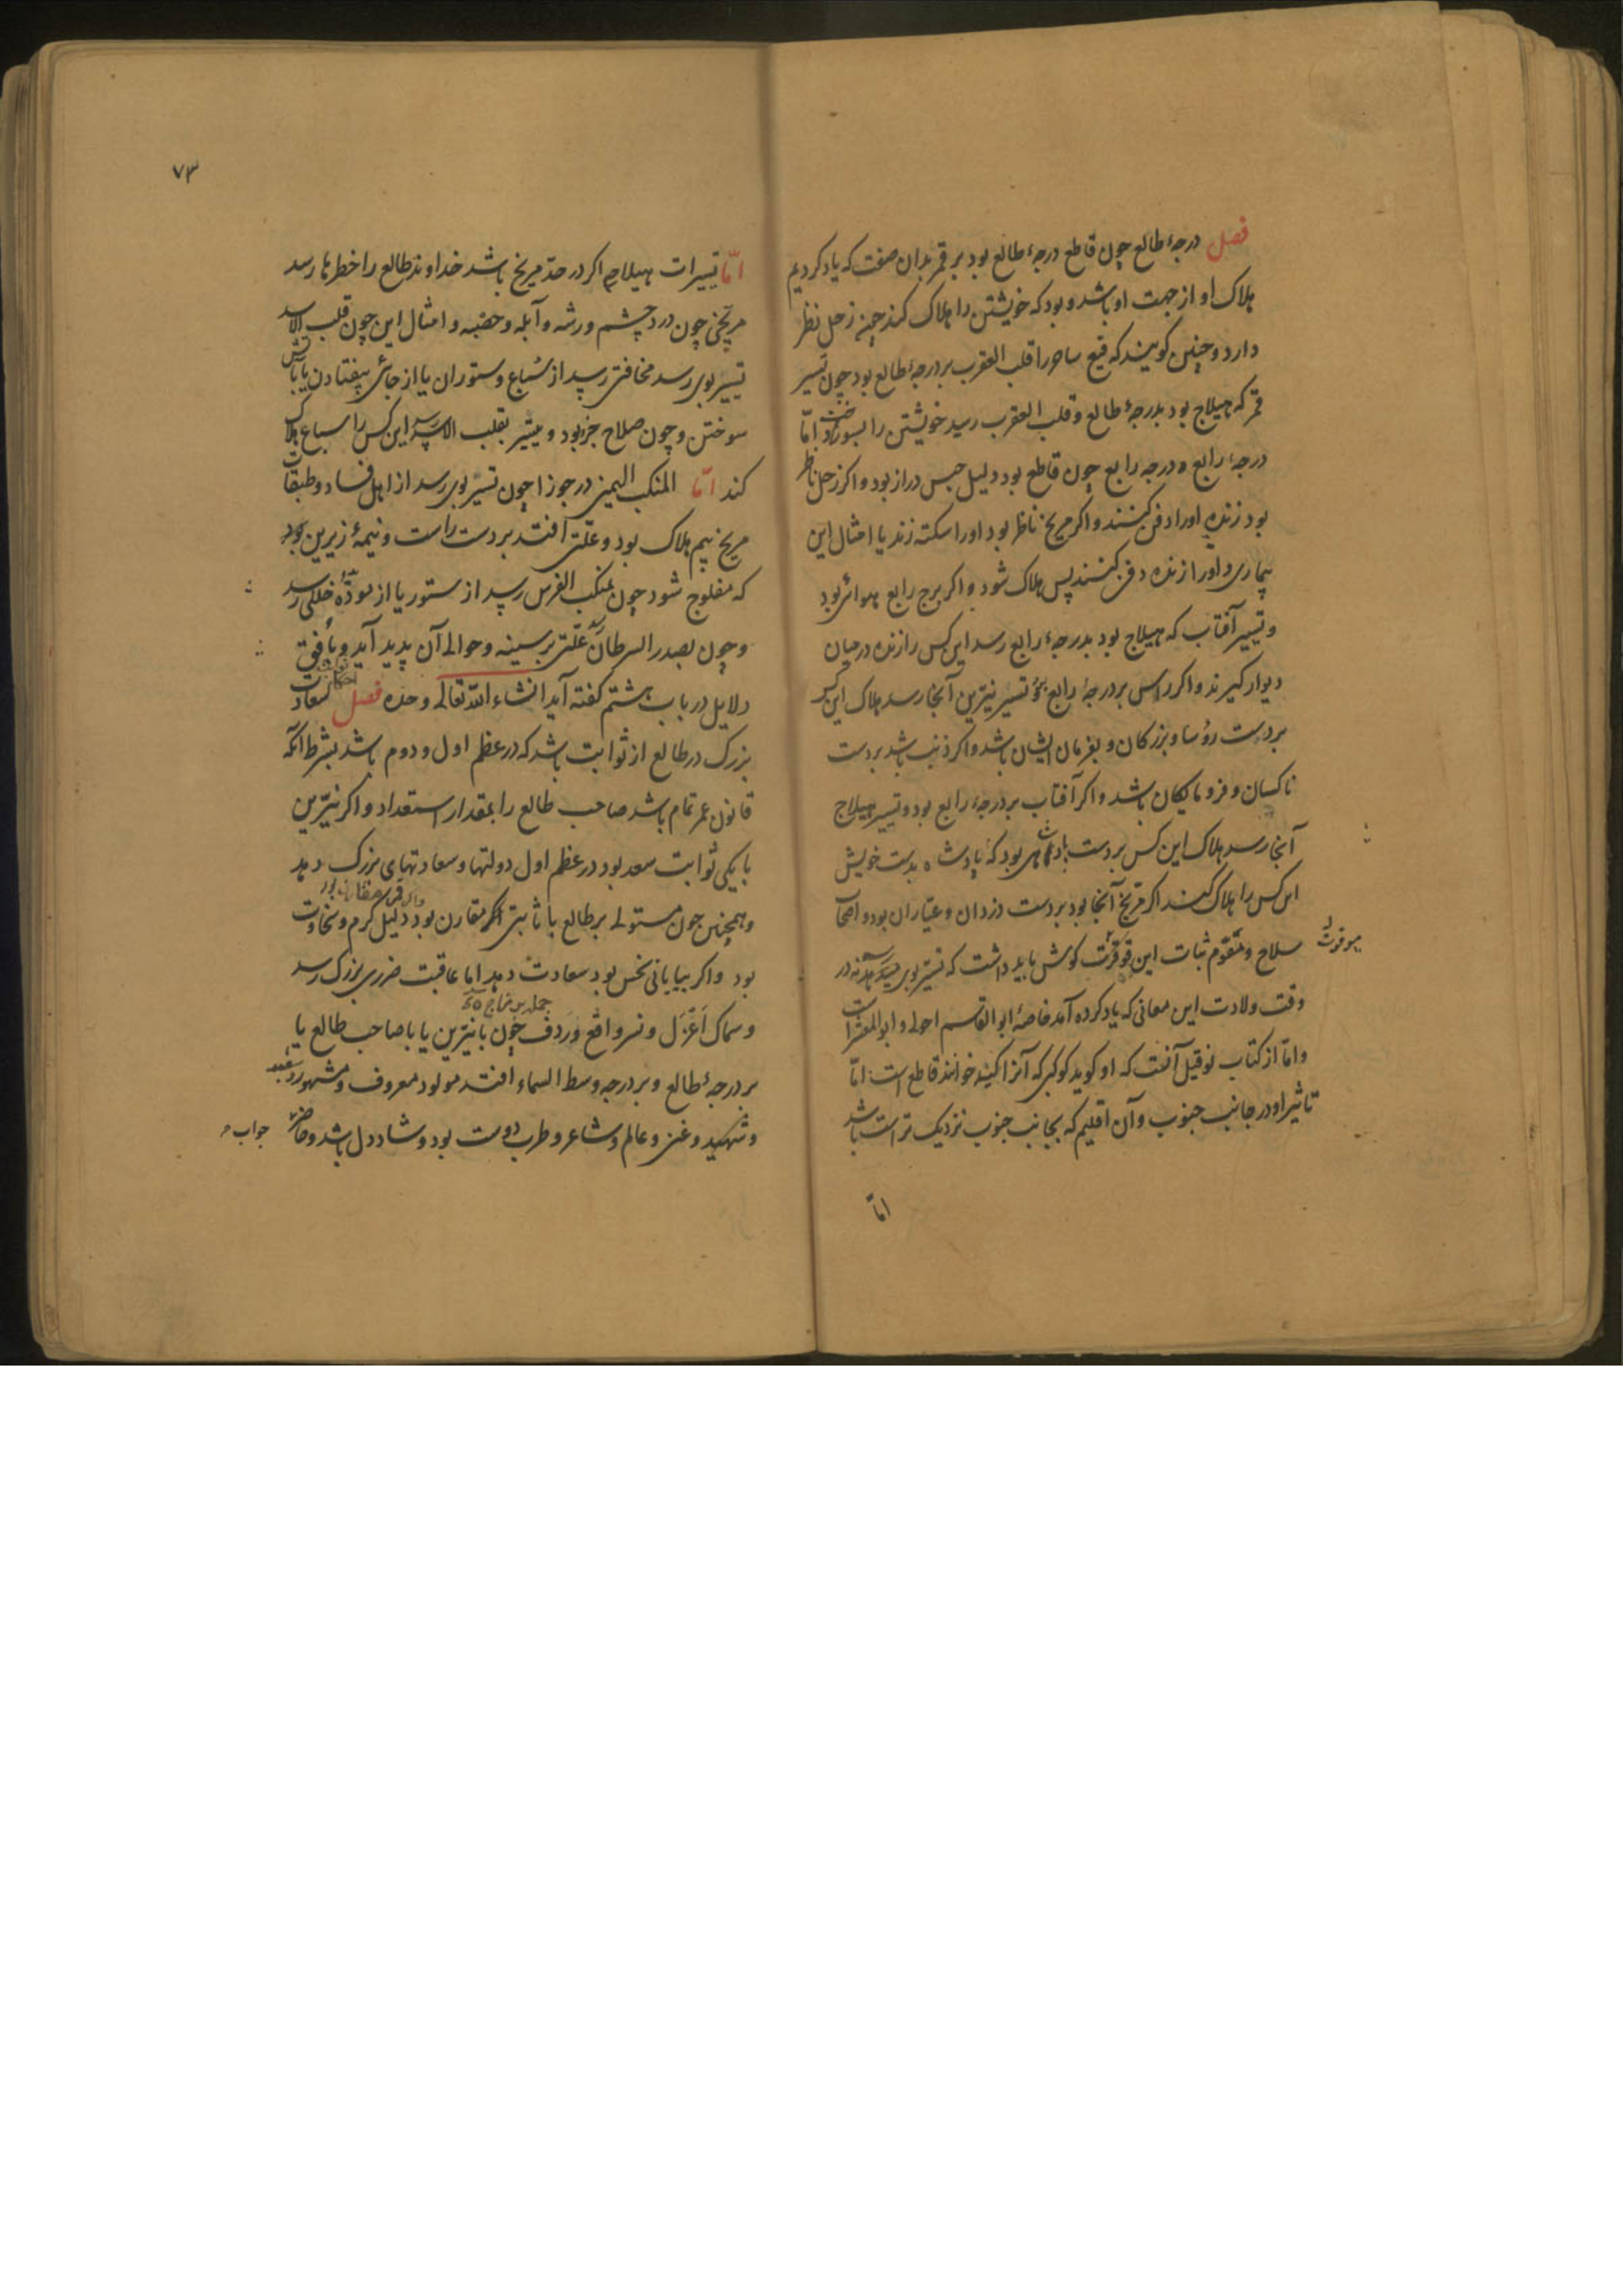 فصل درجهٔ طالع چون قاطع درجهٔ طالع بود بر قمر بدان صفت که یاد کردیم
هلاک او از جهت او باشد و بود که خویشتن را هلاک کند چون زحل نظر
دارد و چنین کویند که قلب العقرب بر درجهٔ طالع بود چون تسییر
قمر که هیلاج بود بدرجهٔ طالع و قلب العقرب رسید خویشتن را بسوزاند امّا
درجهٔ رابع ه درجه رابع چون قاطع بود دلیل حبس دراز بود و اکر زحل ناظر
بود زنده او را دفن کنند و اکر مریخ ناظر بود او را سکته زند یا امثال این
بیماری و او را زنده دفن کنند پس هلاک شود و اکر برج رابع هوائی بود
و تسییر آفتاب که هیلاج بود بدرجهٔ رابع رسد این کس را زنده در میان
دیوار کیرند و اکر راس بر درجهٔ رابع بود تسییر نیّرین آنجا رسد هلاک این کس
بر دست رؤسا و بزرکان و بفرمان ایشان باشد و اکر ذنب باشد بر دست
ناکسان و فرومایکان باشد و اکر آفتاب بر درجهٔ رابع بود و تسییر هیلاج
آنجا رسد هلاک این کس بر دست پادشاهی بود که پادشاه بدست خویش
این کس را هلاک کند اکر مریخ آنجا بود بر دست دزدان و عیّاران بود و اصحاب
سلاح و ثبات این قوت کوش باید داشت که تسییر بوی در
وقت ولادت این معانی که یاد کرده آمد خاصهٔ ابوالقاسم احول و ابوالمعشرات
و امّا از کتاب نوقیل آنست که او کوید کوکبی که آنرا کید خوانند قاطع است امّا
تاثیر او در جانب جنوب و آن اقلیم که بجانب جنوب نزدیک تر است باشد
امّا
۷۳
امّا تسییرات هیلاج اکر در حدّ مریخ باشد خداوند طالع را خطرها رسد
مریخی چون درد چشم و رشه و آبله و حصبه و امثال این چون قلب الاسد
تسییر بوی رسد مخافتی رسد از سُباع و ستوران یا از جائی بیفتادن یا باتش
سوختن و چون صلاح جزو بود و تسییر بقلب الاسد رسد این کس را سباع هلاک
کند امّا المنکب الیمنی در جوزا چون تسییر بوی رسد از اهل فساد و طبقات
مریخ بیم هلاک بود و علّتی افتد بر دست راست و نیمهٔ زیرین بود
که مفلوج شود چون بمنکب الفرس رسد از ستور یا از خللی رسد
و چون بصدر السرطان علّتی بر سینه و حوالی آن پدید آید و باقی
دلایل در باب هشتم کفته آید انشاء اللّه تعالی وحده فصل سعادت
بزرک در طالع از ثوابت باشد که در عظم اول و دوم باشد بشرط آنکه
قانون عمر تمام باشد صاحب طالع را بمقدار استعداد و اکر نیّرین
با یکی ثوابت سعد بود در عظم اول دولتها و سعادتهای بزرک دهد
و همچنین چون مستولی بر طالع با ثابتی مقارن بود دلیل کرم و سخاوت
بود و اکر بیابانی نحس بود سعادت دهد اما عاقبت ضرری بزرک رسد
و سماک اعزل و نسر واقع و ردف چون با نیّرین یا با صاحب طالع یا
بر درجهٔ طالع و بر درجه وسط السماء افتد مولود معروف و مشهور
و غنی و عالم و شاعر و طرب دوست بود و شاد دل باشد و حاضر
جواب